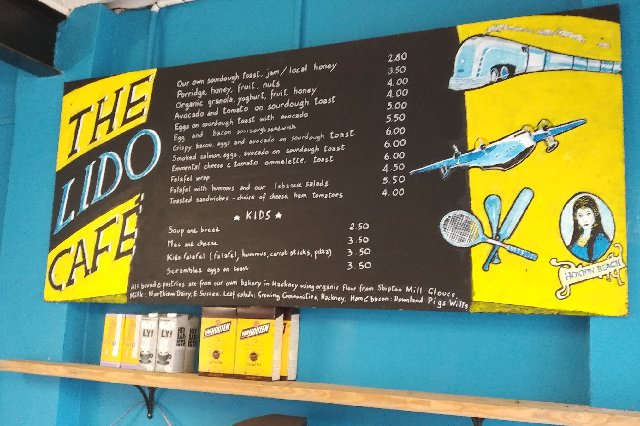 THE
LIDO
CAFÉ
Our own sourdough toast, jam / local honey 2.80
Porridge, honey, fruit, nuts 3.50
Organic granola, yoghurt, fruit, honey 4.00
Avocado and tomato on sourdough toast 4.00
Eggs on sourdough toast with avocado 5.00
Egg and bacon sourdough sandwich 5.50
Crispy bacon, eggs and avocado on sourdough toast 6.00
Smoked salmon, eggs, avocado on sourdough toast 6.00
Emmental cheese & tomato ommelette, toast 6.00
Falafel wrap 4.50
Falafel with hummus and our lebanese salads 5.50
Toasted sandwiches - choice of cheese, ham, tomatoes 4.00
★ KIDS ★
Soup and bread 2.50
Mac and cheese 3.50
Kids falafel (falafel, hummus, carrot sticks, pitta) 3.50
Scrambled eggs on toast 3.50
All bread & pastries are from our own bakery in Hackney using organic flour from Shipton Mill Glouc.
Milk: Northiam Dairy, E. Sussex. Leaf salads: Growing Communities, Hackney. Ham & bacon: Downland Pigs Wilts
HOXTON BEACH
LY!
VAN HOUTEN
VAN HOUTEN